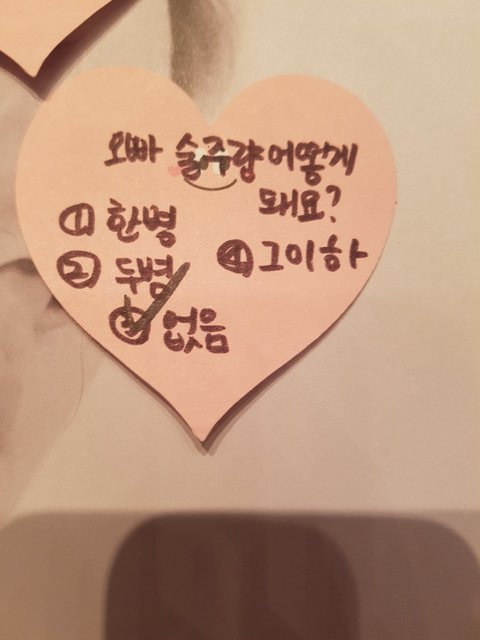 오빠 술주량 어떻게
돼요?
① 한병
② 두병
③ 없음
④ 그이하